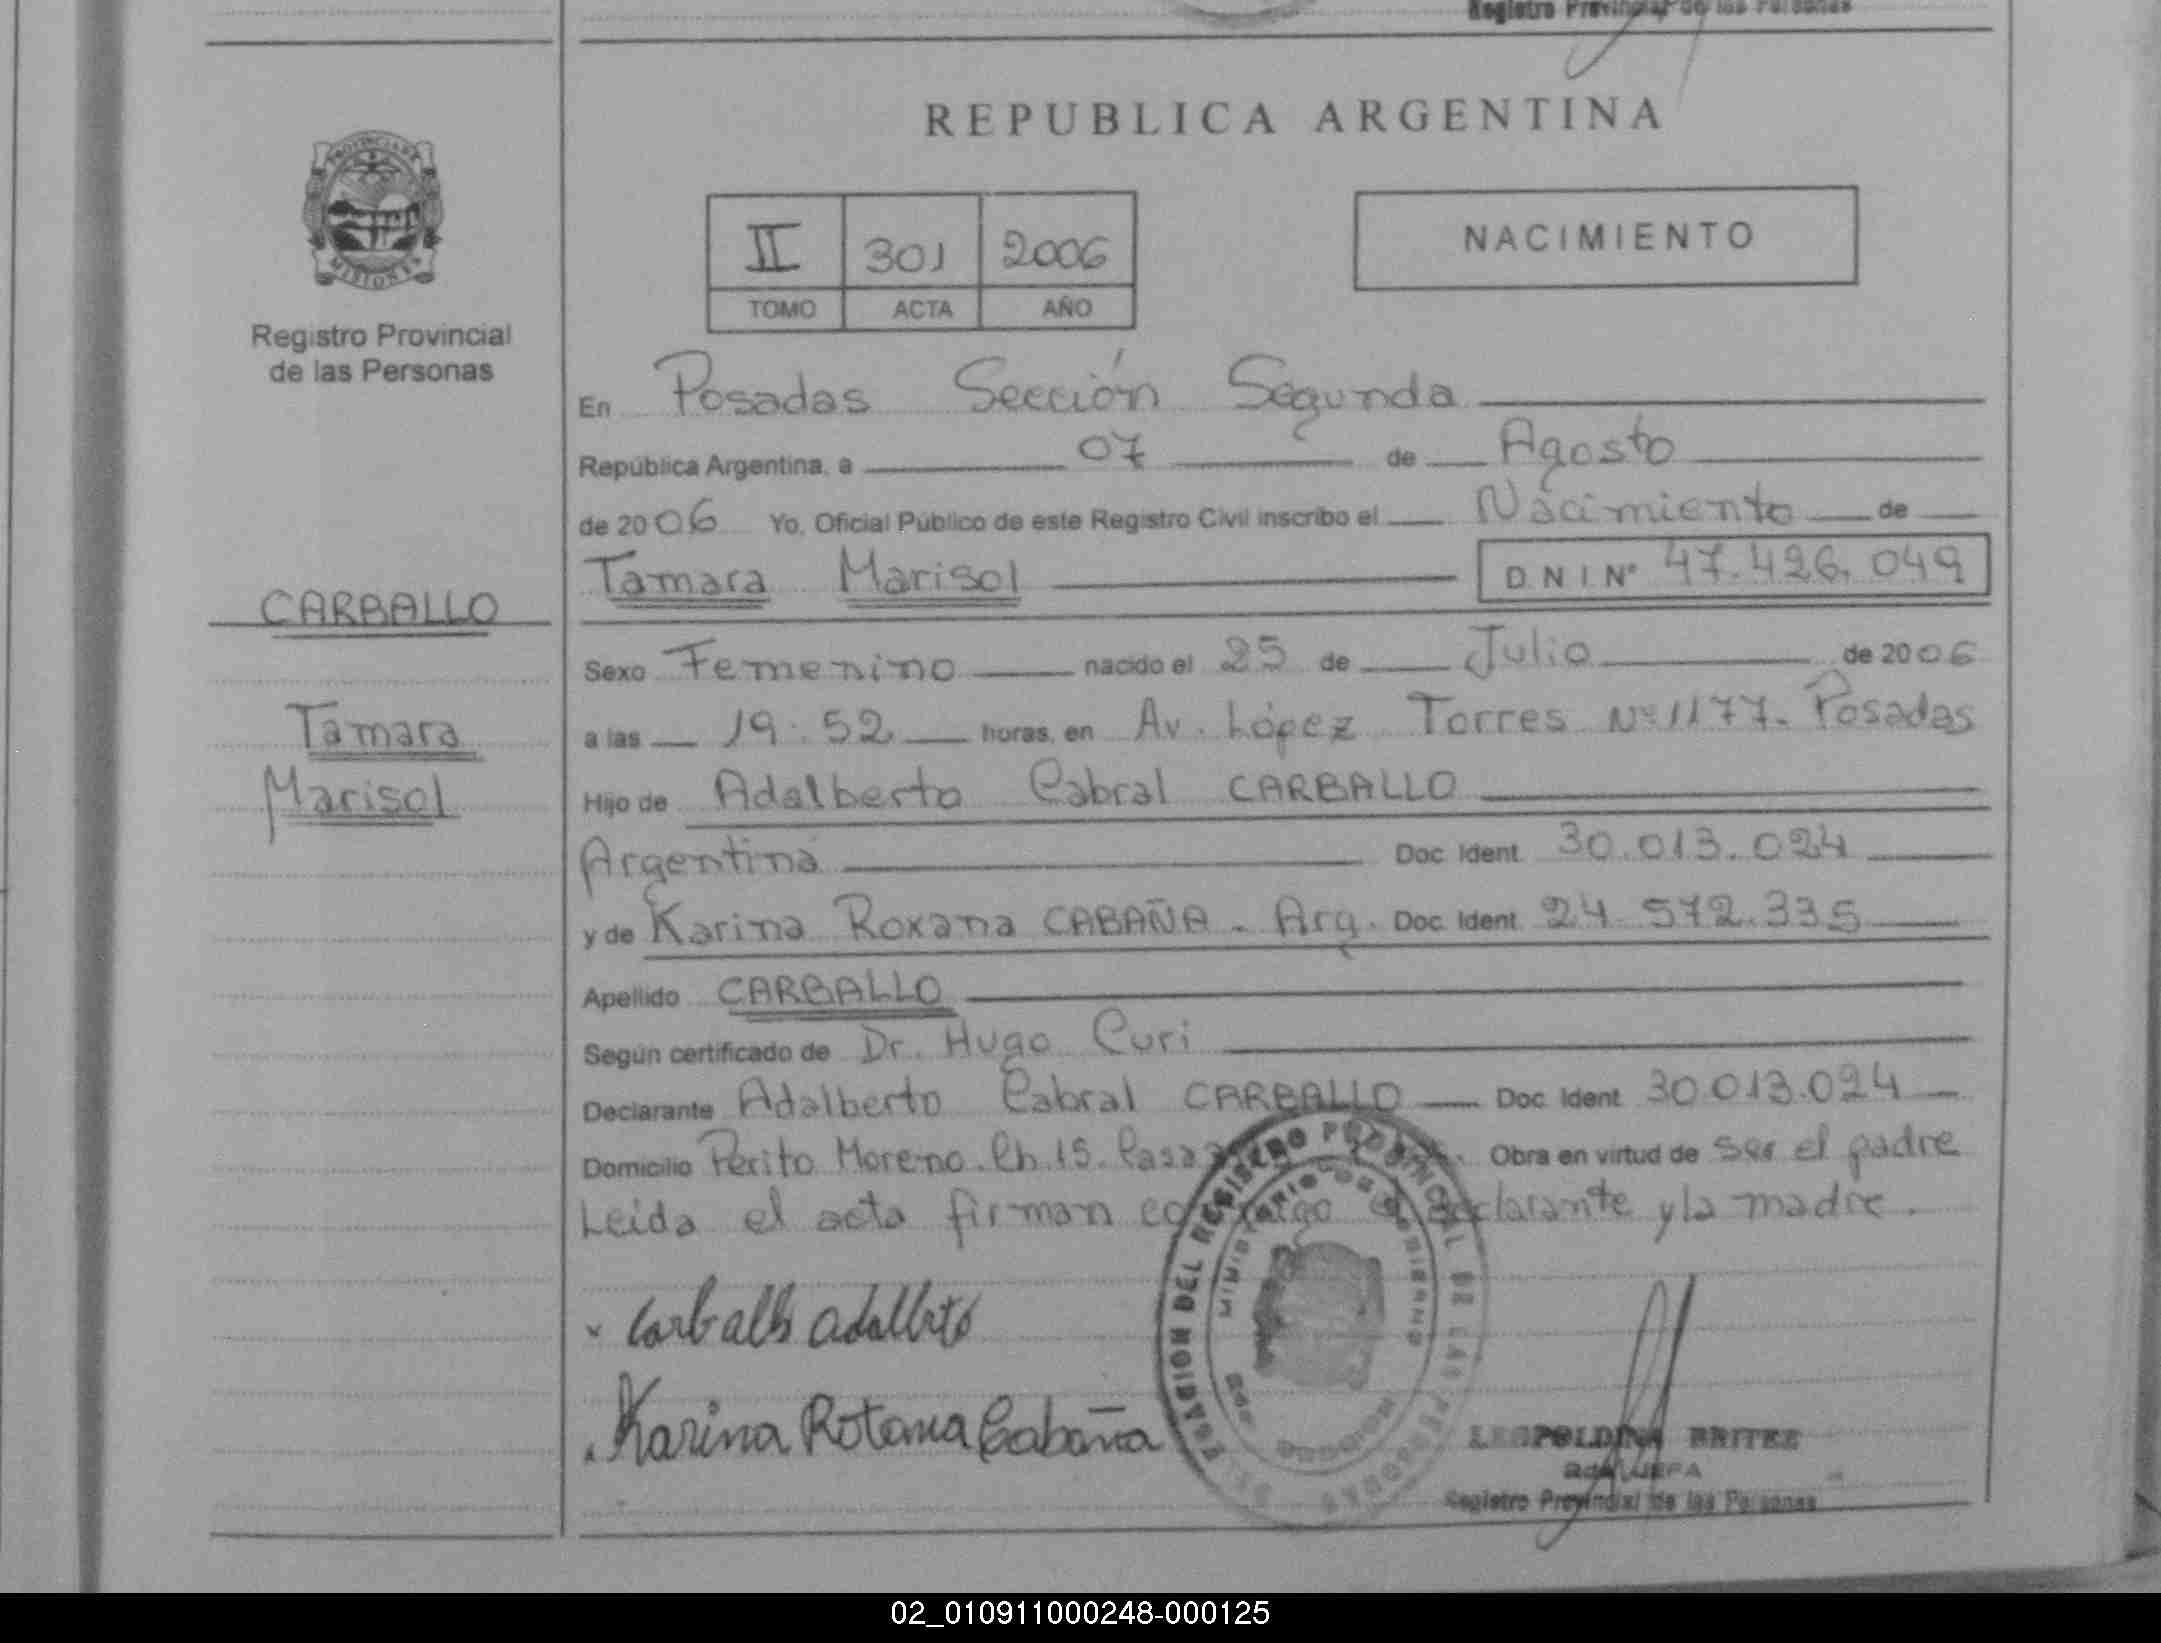 Registro Provincial de las Personas
REPUBLICA ARGENTINA
PROVINCIA DE
MISIONES
Registro Provincial
de las Personas
II 301 2006
TOMO ACTA AÑO
NACIMIENTO
En Posadas Sección Segunda
República Argentina, a 07 de Agosto
de 2006 Yo, Oficial Público de este Registro Civil inscribo el Nacimiento de
Tamara Marisol D.N.I.Nº 47.426.049
CARBALLO
Tamara
Marisol
Sexo Femenino nacido el 25 de Julio de 2006
a las 19:52 horas, en Av. López Torres Nº 1177. Posadas
Hijo de Adalberto Cabral CARBALLO
Argentina Doc. Ident. 30.013.024
y de Karina Roxana CABAÑA - Arg. Doc. Ident. 24.572.335
Apellido CARBALLO
Según certificado de Dr. Hugo Curi
Declarante Adalberto Cabral CARBALLO Doc. Ident. 30.013.024
Domicilio Perito Moreno. Ch. 15. Casa Obra en virtud de ser el padre
Leida el acta firman el declarante y la madre.
Carballo Adalberto
Karina Rotana Cabaña
DEL REGISTRO PROVINCIAL DE LAS PERSONAS
MINISTERIO DE GOBIERNO
LEOPOLDINA BRITEZ
Registro Provincial de las Personas
02_010911000248-000125